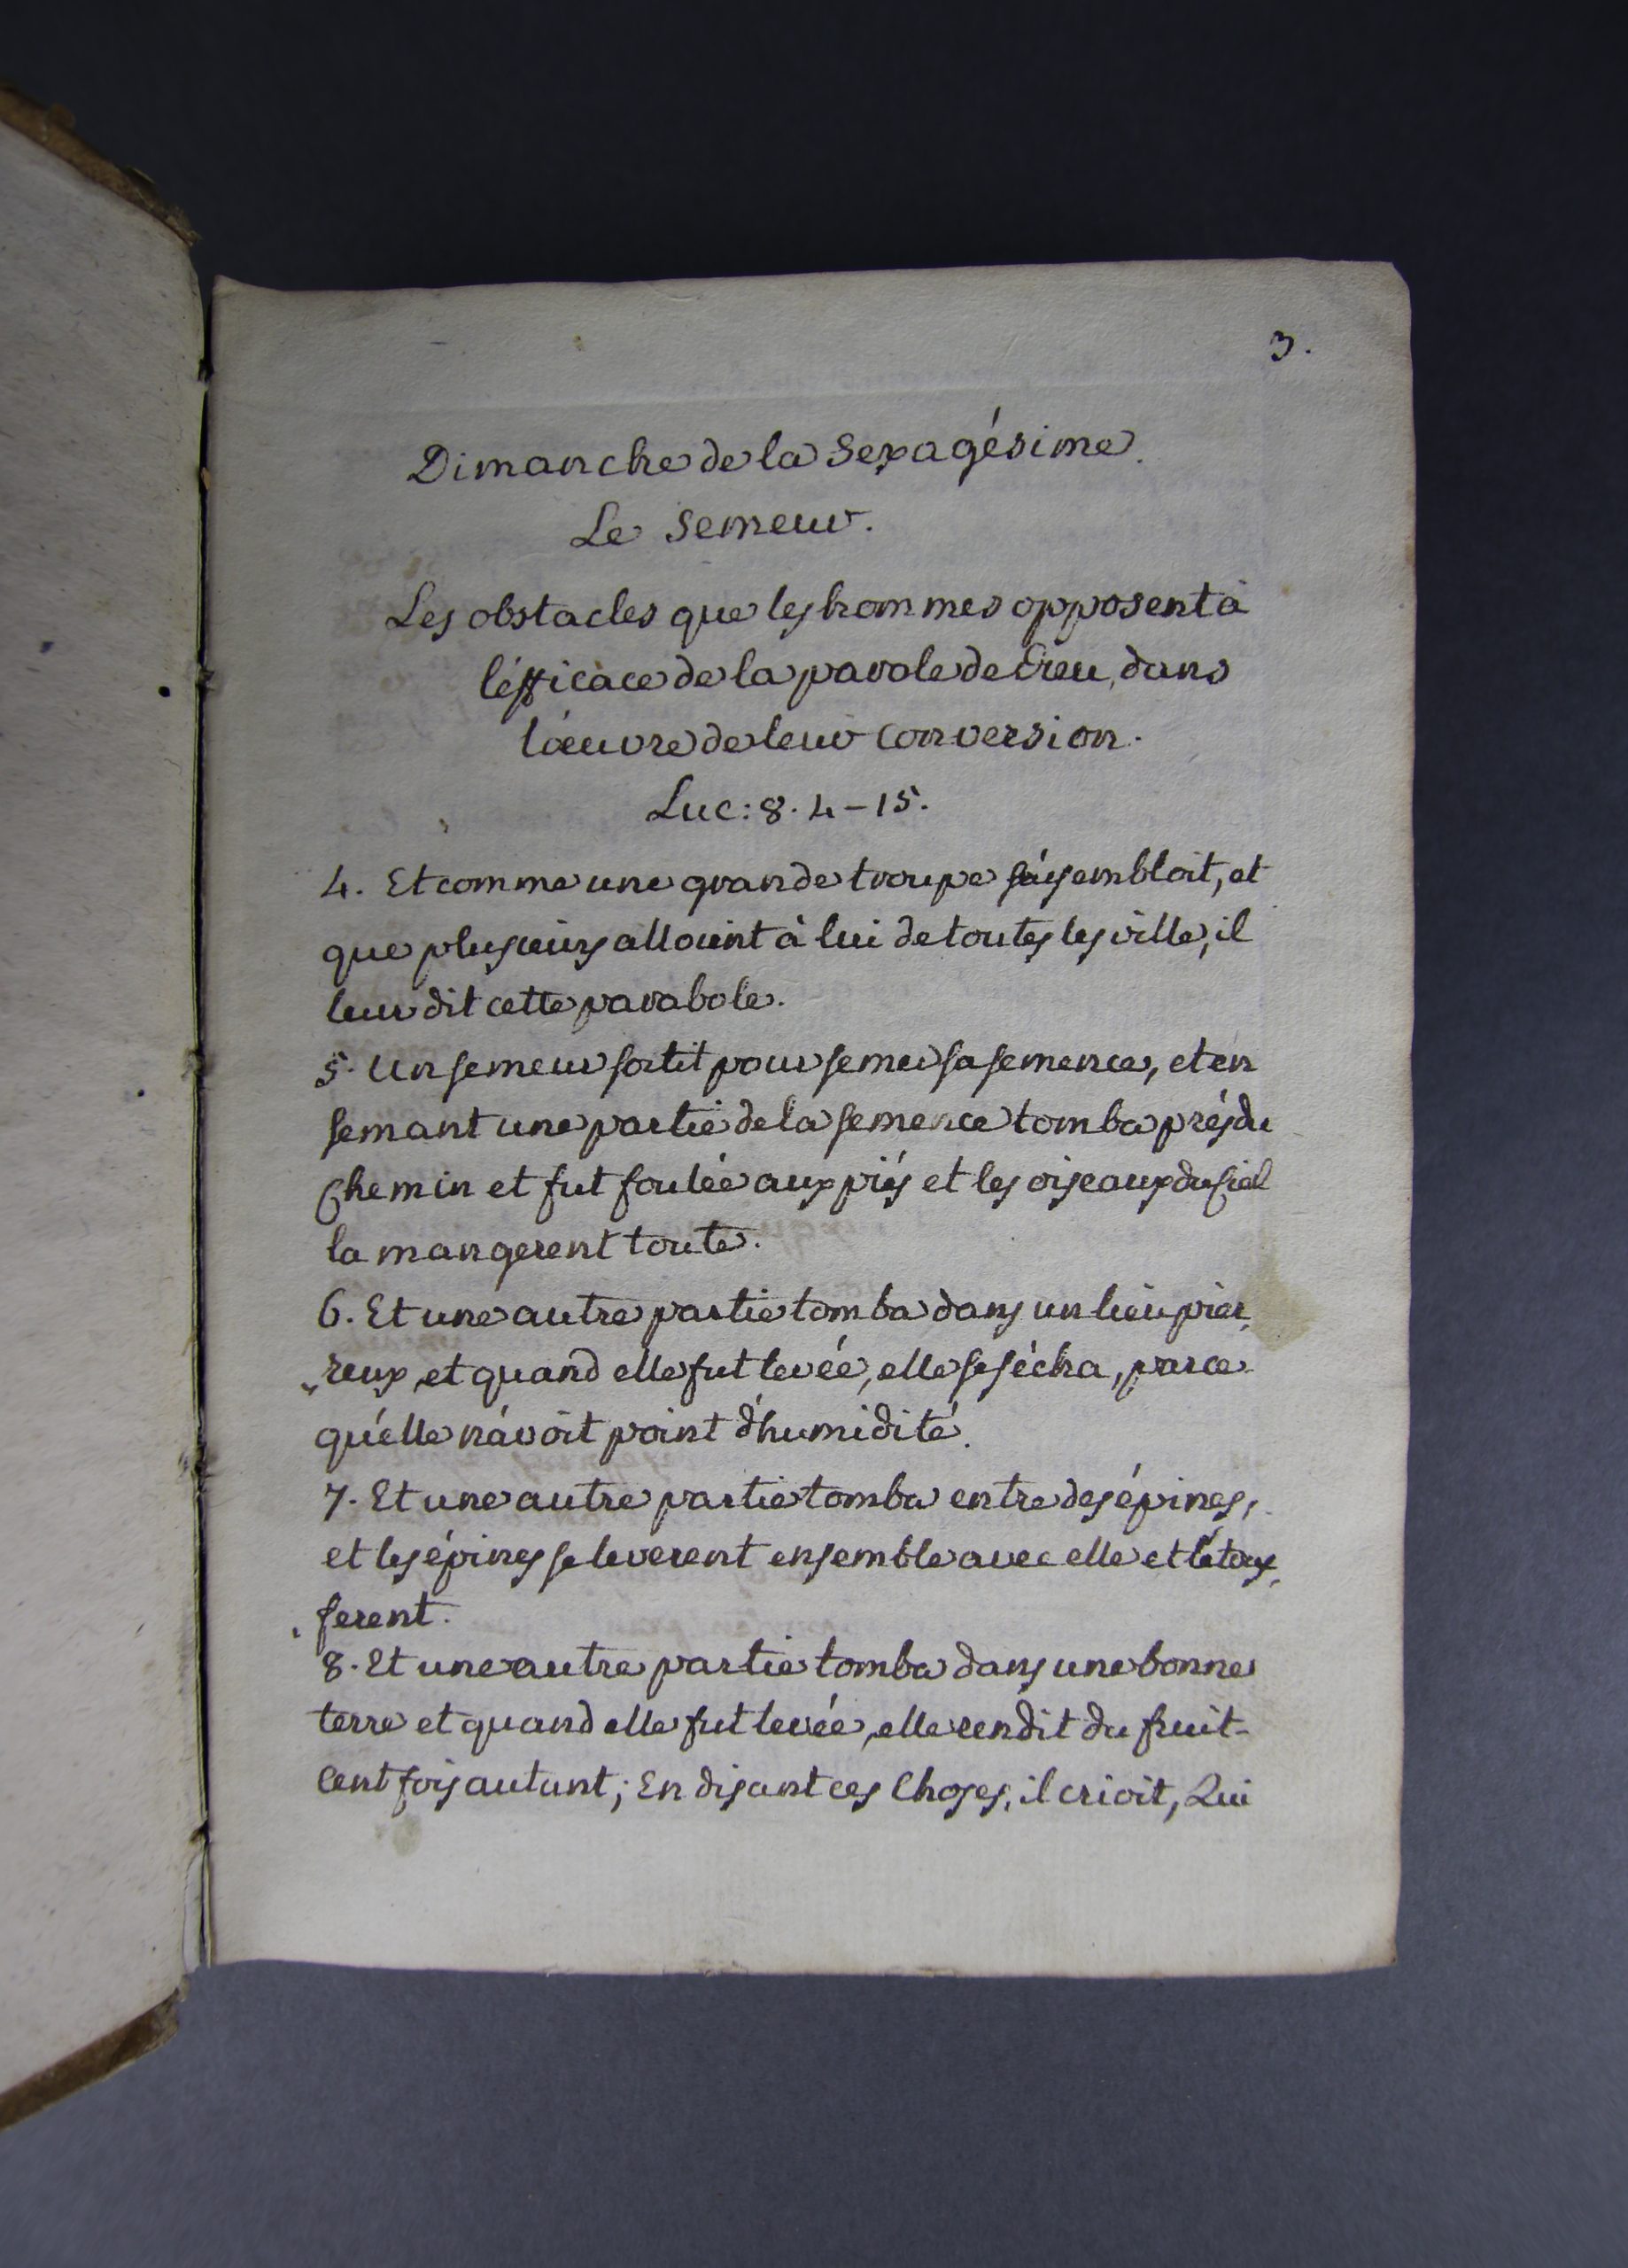 3.
Dimanche de la Sexagésime.
Le Semeur.
Les obstacles que les hommes opposent à
l'éfficace de la parole de Dieu, dans
l'œuvre de leur Conversion.
Luc: 8. 4-15.
4. Et comme une grande troupe s'assembloit, et
que plusieurs alloient à lui de toutes les ville, il
leur dit cette parabole.
5. Un semeur sortit pour semer sa semence, et en
semant une partie de la semence tomba prés du
Chemin et fut foulée aux piés et les oiseaux du Ciel
la mangerent toute.
6. Et une autre partie tomba dans un lieu pier„
„reux, et quand elle fut levée, elle se sécha, parce
qu'elle n'avoit point d'humidité.
7. Et une autre partie tomba entre des épines,
et les épines se leverent ensemble avec elle et l'étouf„
„ferent.
8. Et une autre partie tomba dans une bonne
terre et quand elle fut levée, elle rendit du fruit
Cent fois autant; En disant ces Choses, il crioit, Qui